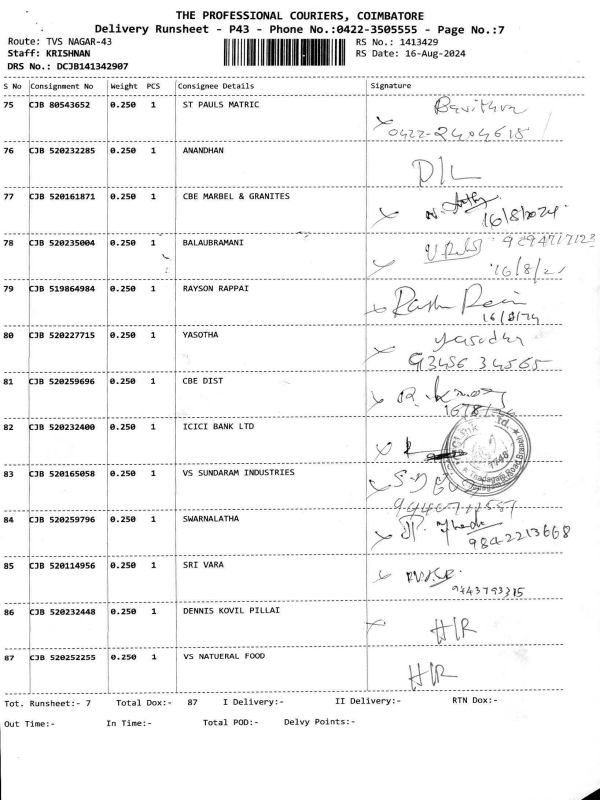 THE PROFESSIONAL COURIERS, COIMBATORE
Delivery Runsheet - P43 - Phone No.:0422-3505555 - Page No.:7
Route: TVS NAGAR-43 RS No.: 1413429
Staff: KRISHNAN RS Date: 16-Aug-2024
DRS No.: DCJB141342907
S No Consignment No Weight PCS Consignee Details Signature
75 CJB 80543652 0.250 1 ST PAULS MATRIC
0422-2404618
76 CJB 520232285 0.250 1 ANANDHAN D/L
77 CJB 520161871 0.250 1 CBE MARBEL & GRANITES
16/8/2024
78 CJB 520235004 0.250 1 BALAUBRAMANI
16/8/21
79 CJB 519864984 0.250 1 RAYSON RAPPAI
16/8/24
80 CJB 520227715 0.250 1 YASOTHA
93456 34565
81 CJB 520259696 0.250 1 CBE DIST
82 CJB 520232400 0.250 1 ICICI BANK LTD
83 CJB 520165058 0.250 1 VS SUNDARAM INDUSTRIES
84 CJB 520259796 0.250 1 SWARNALATHA
9842213668
85 CJB 520114956 0.250 1 SRI VARA
9443793315
86 CJB 520232448 0.250 1 DENNIS KOVIL PILLAI H/R
87 CJB 520252255 0.250 1 VS NATUERAL FOOD H/R
Tot. Runsheet:- 7 Total Dox:- 87 I Delivery:- II Delivery:- RTN Dox:-
Out Time:- In Time:- Total POD:- Delvy Points:-